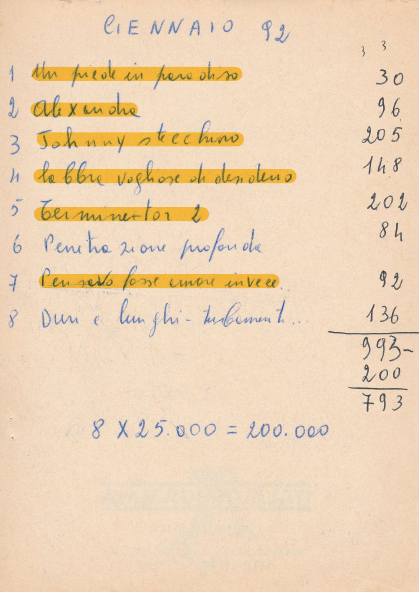 GENNAIO 92
3 3
1 Un piede in paradiso 30
2 Alexandra 96
3 Johnny stecchino 205
4 Labbra vogliose di desiderio 148
5 Terminator 2 202
6 Penetrazione profonda 84
7 Pensavo fosse amore invece.. 92
8 Duri e lunghi - turbamenti... 136
993-
200
793
8 X 25.000 = 200.000